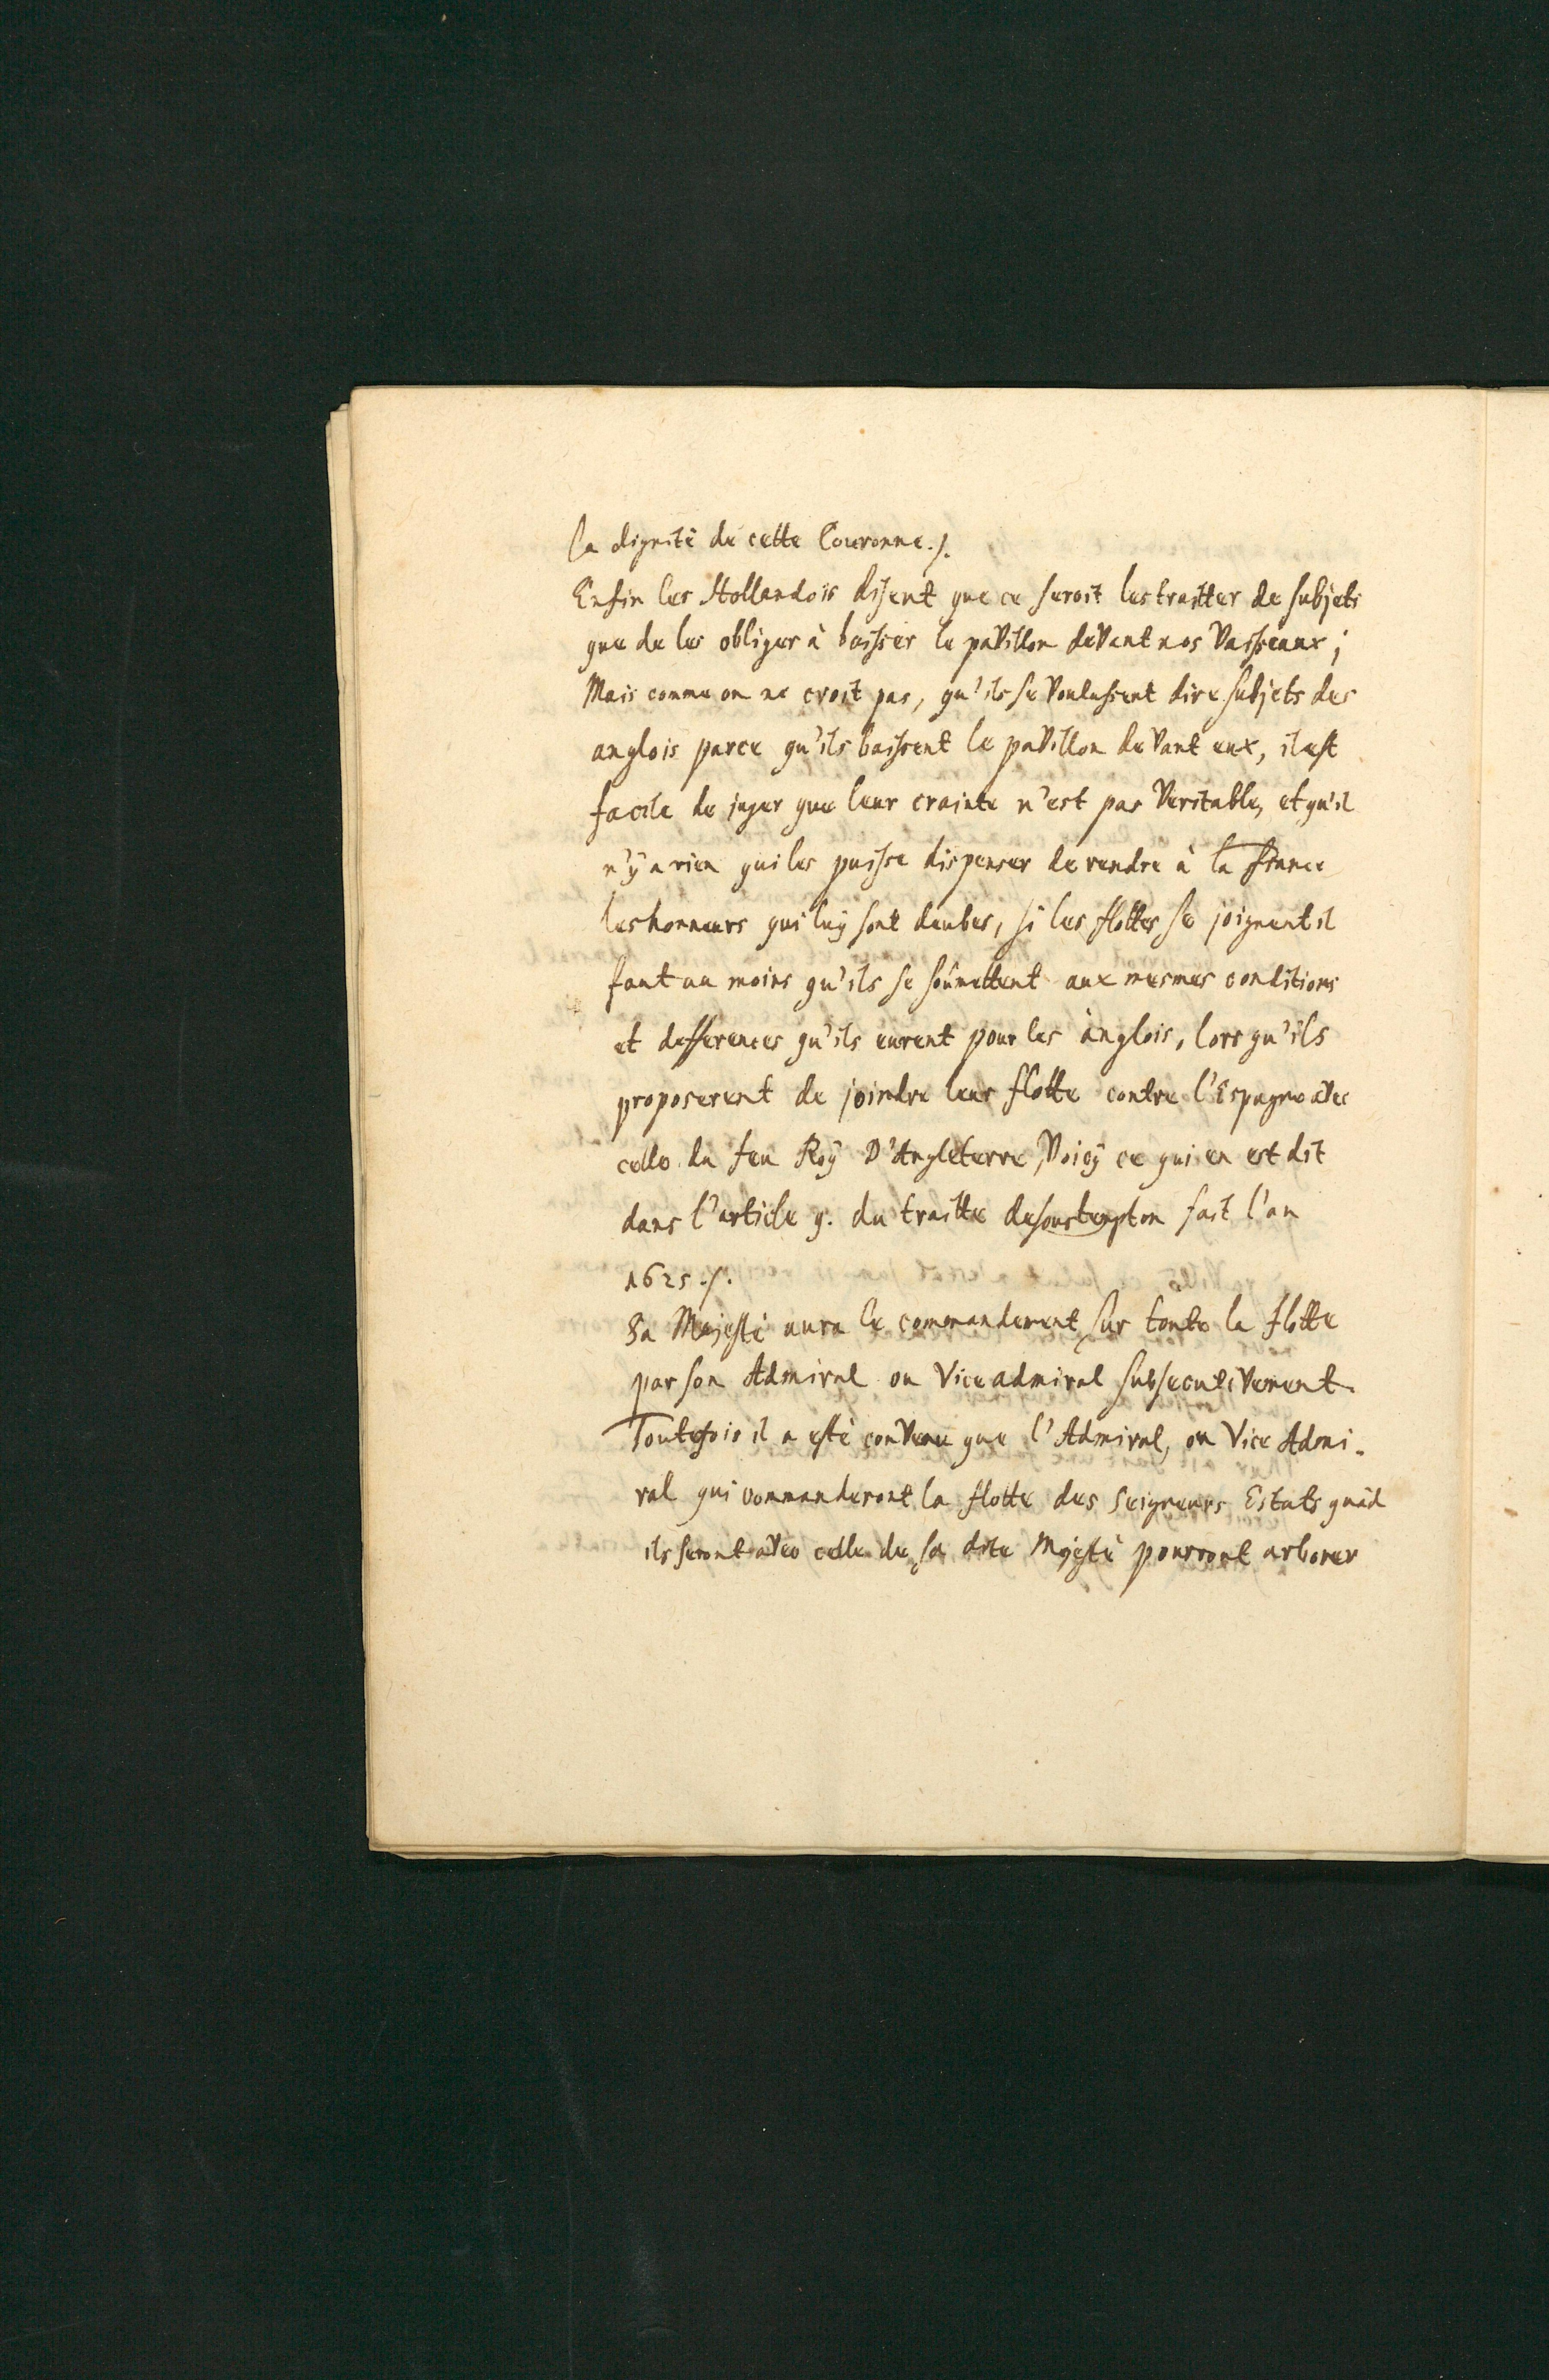 la dignitè de cette Couronne./.
Enfin les Hollandois disent que ce seroit les traitter de subjets
que de les obliger à baisser le pavillon devant nos Vaisseaux;
Mais comme on ne croit pas, qu'ils se voulussent dire subjets des
anglois parce qu'ils baissent le pavillon devant eux, il est
facile de juger que leur crainte n'est pas Veritable, et qu'il
n'ÿ a rien qui les puisse dispenser de rendre à la France
les honneurs qui luÿ sont deubes, si les flottes se joignent il
faut au moins qu'ils se soûmettent aux mesmes conditions
et defferences qu'ils eurent pour les anglois, lors qu'ils
proposerent de joindre leur flotte contre l'Espagne avec
celle du feu Roÿ D'Angleterre, Voicÿ ce qui en est dit
dans l'article 9. du traitte de soustempton fait l'an
1625./.
Sa Majestè aura le commandement sur toute la flotte
par son Admiral ou Vice admiral subsecutivement.
Toutefois il a estè convenu que l'Admiral, ou Vice Admi-
ral qui commanderont la flotte des Seigneurs Estats quād
ils seront avec celle de sa dite Majestè pourront arborer